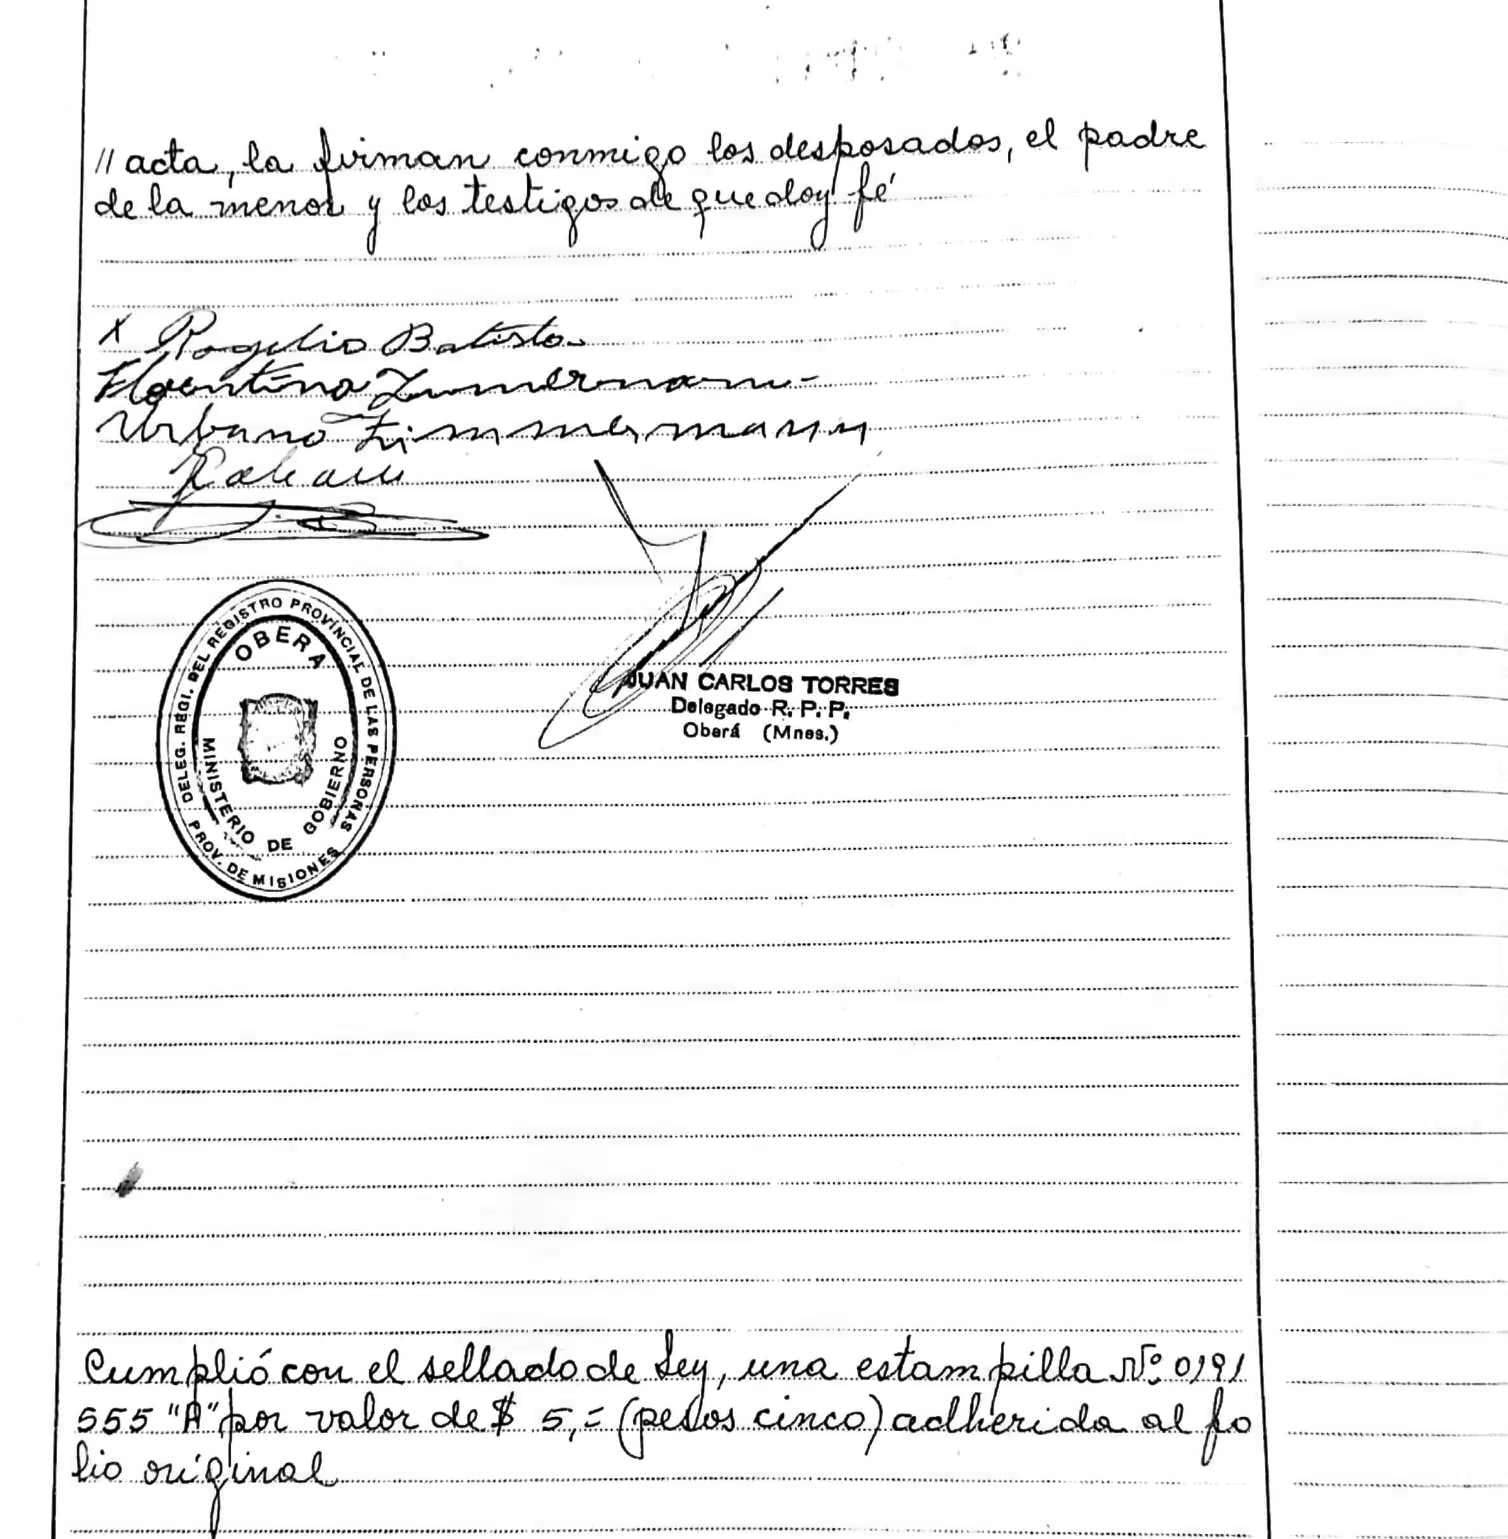 // acta, la firman conmigo los desposados, el padre
de la menor y los testigos de que doy fé
x Rogelio Batista
Florentina Zimmermann
Urbano Zimmermann
DELEG. REGI. DEL REGISTRO PROVINCIAL DE LAS PERSONAS
OBERA
MINISTERIO DE GOBIERNO
PROV. DE MISIONES
JUAN CARLOS TORRES
Delegado R. P. P.
Oberá (Mnes.)
Cumplió con el sellado de Ley, una estampilla Nº 0191
555 "A" por valor de $ 5,= (pesos cinco) adherida al fo
lio original